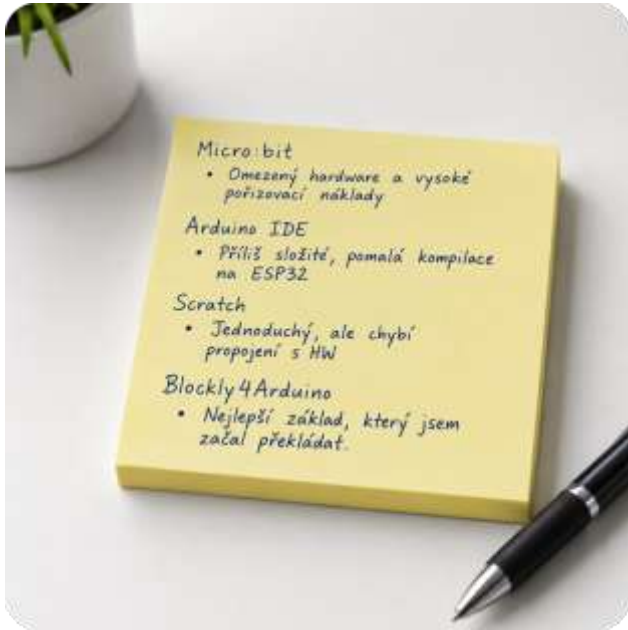 Micro:bit
• Omezený hardware a vysoké
pořizovací náklady
Arduino IDE
• Příliš složité, pomalá kompilace
na ESP32
Scratch
• Jednoduchý, ale chybí
propojení s HW
Blockly4Arduino
• Nejlepší základ, který jsem
začal překládat.